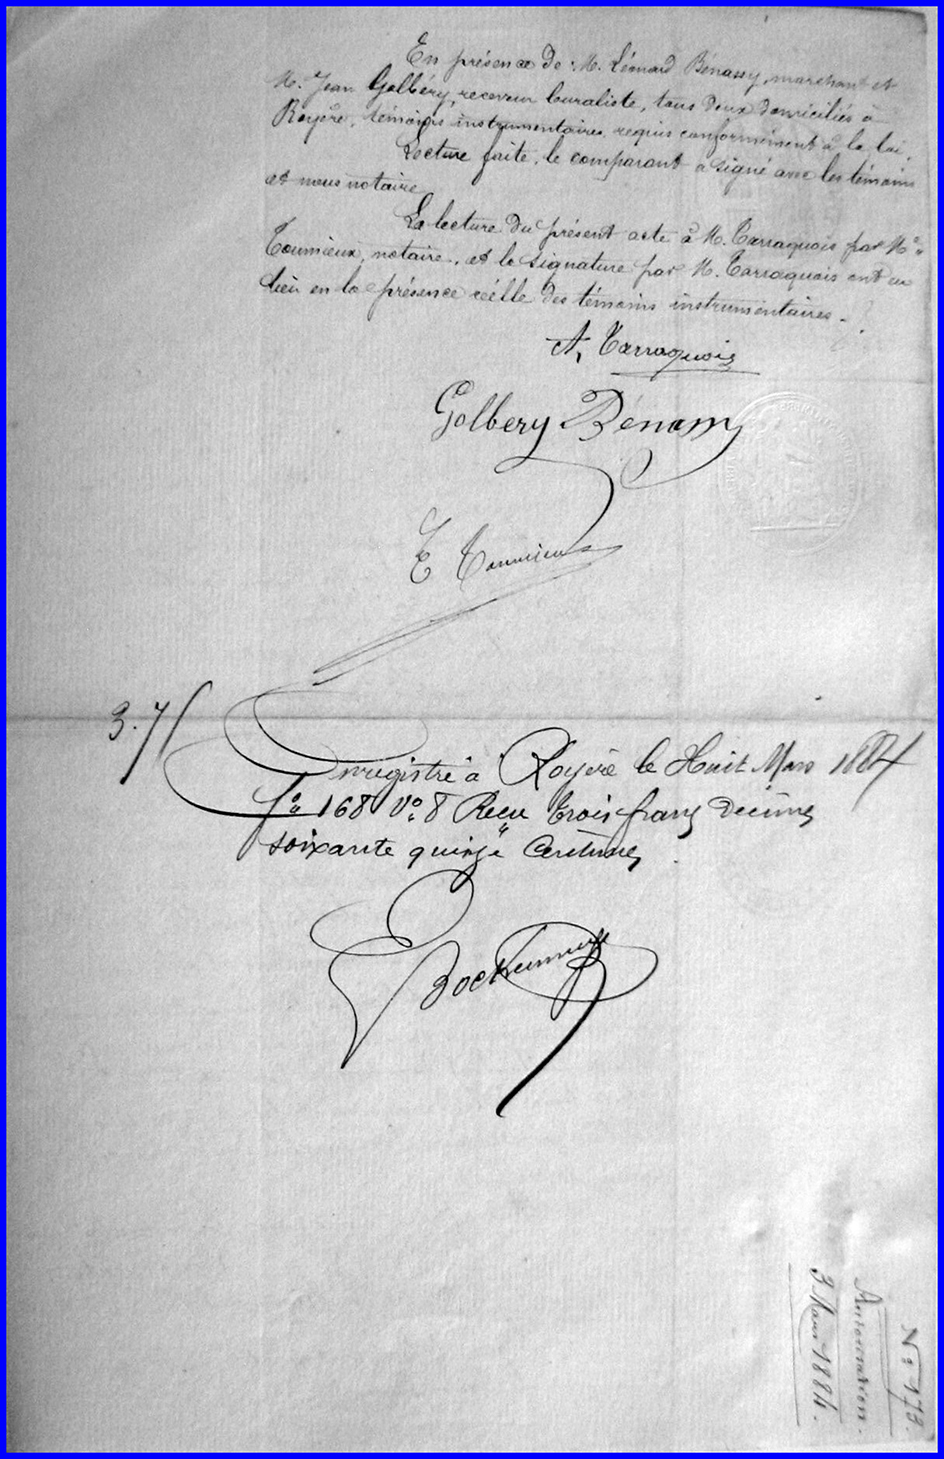 En présence de M. Léonard Bénassy, marchant et
M. Jean Golbéry, receveur buraliste, tous deux domiciliés à
Royère, témoins instrumentaires, requis conformément à la loi.
Lecture faite, le comparant a signé avec les témoins
et nous notaire
La lecture du présent acte à M. Tarraquois par Me
Toumieux, notaire, et la signature par M. Tarraquois ont eu
lieu en la présence réelle des témoins instrumentaires.
A, Tarraquois
Golbery Bénassy
E Toumieux
3.75
Enregistré à Royère le Huit Mars 1884
fo 168 Vo 8 Reçu trois francs décimes
soixante quinze centimes
No 173.
Autorisation.
3 Mars 1884.